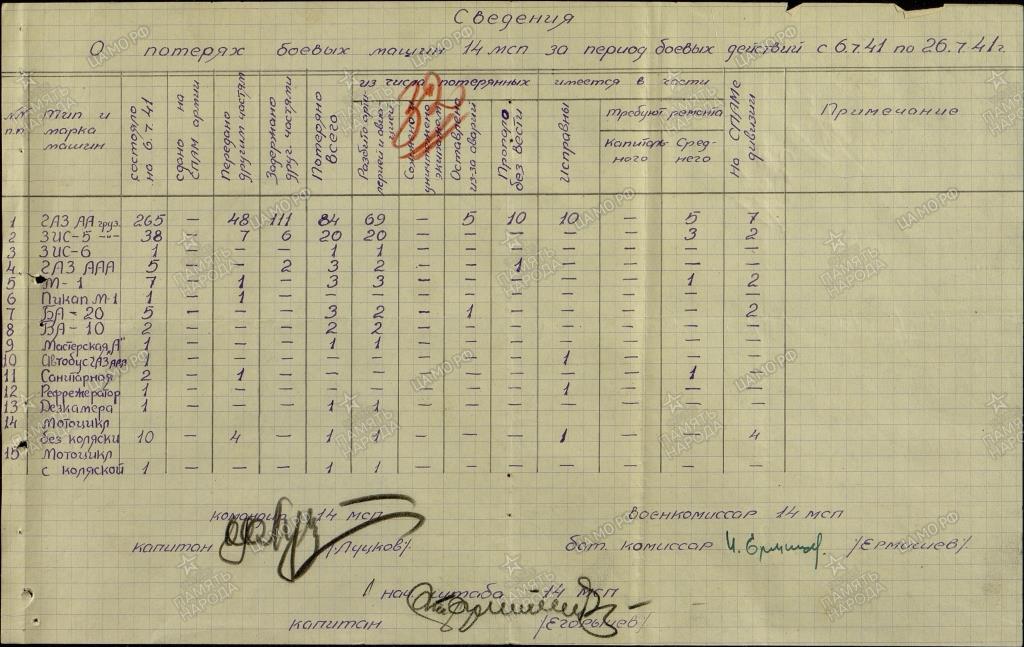 Сведения
О потерях боевых машин 14 мсп за период боевых действий с 6.7.41 по 26.7.41г.
№№ п.п. Тип и марка машин состояло на 6.7.41 сдано на СПАМ армии Передано другим частям Задержано друг. частями Потеряно всего из числа потерянных имеется в части На СПАМе дивизии Примечание
Разбито артиллерией и авиацией уничтожено экипажем Оставлено из-за аварии Пропало без вести исправны требуют ремонта
Капитального Среднего
1 ГАЗ АА груз. 265 — 48 111 84 69 — 5 10 10 — 5 7
2 ЗИС-5 -"- 38 — 7 6 20 20 — — — — — 3 2
3 ЗИС-6 1 — — — 1 1 — — — — — — —
4 ГАЗ ААА 5 — — 2 3 2 — — 1 — — — —
5 М-1 7 — 1 — 3 3 — — — — — 1 2
6 Пикап М-1 1 — 1 — — — — — — — — — —
7 БА-20 5 — — — 3 2 — 1 — — — — 2
8 БА-10 2 — — — 2 2 — — — — — — —
9 Мастерская "А" 1 — — — 1 1 — — — — — — —
10 Автобус ГАЗ ААА 1 — — — — — — — — 1 — — —
11 Санитарная 2 — 1 — — — — — — — — 1 —
12 Рефрежератор 1 — — — — — — — — 1 — — —
13 Дезкамера 1 — — — 1 1 — — — — — — —
14 Мотоцикл
без коляски 10 — 4 — 1 1 — — — 1 — — 4
15 Мотоцикл
с коляской 1 — — — 1 1 — — — — — — —
командир 14 мсп военкомиссар 14 мсп
капитан /Луцков/. бат. комиссар /Ермишев/.
нач. штаба 14 мсп
капитан /Егорычев/